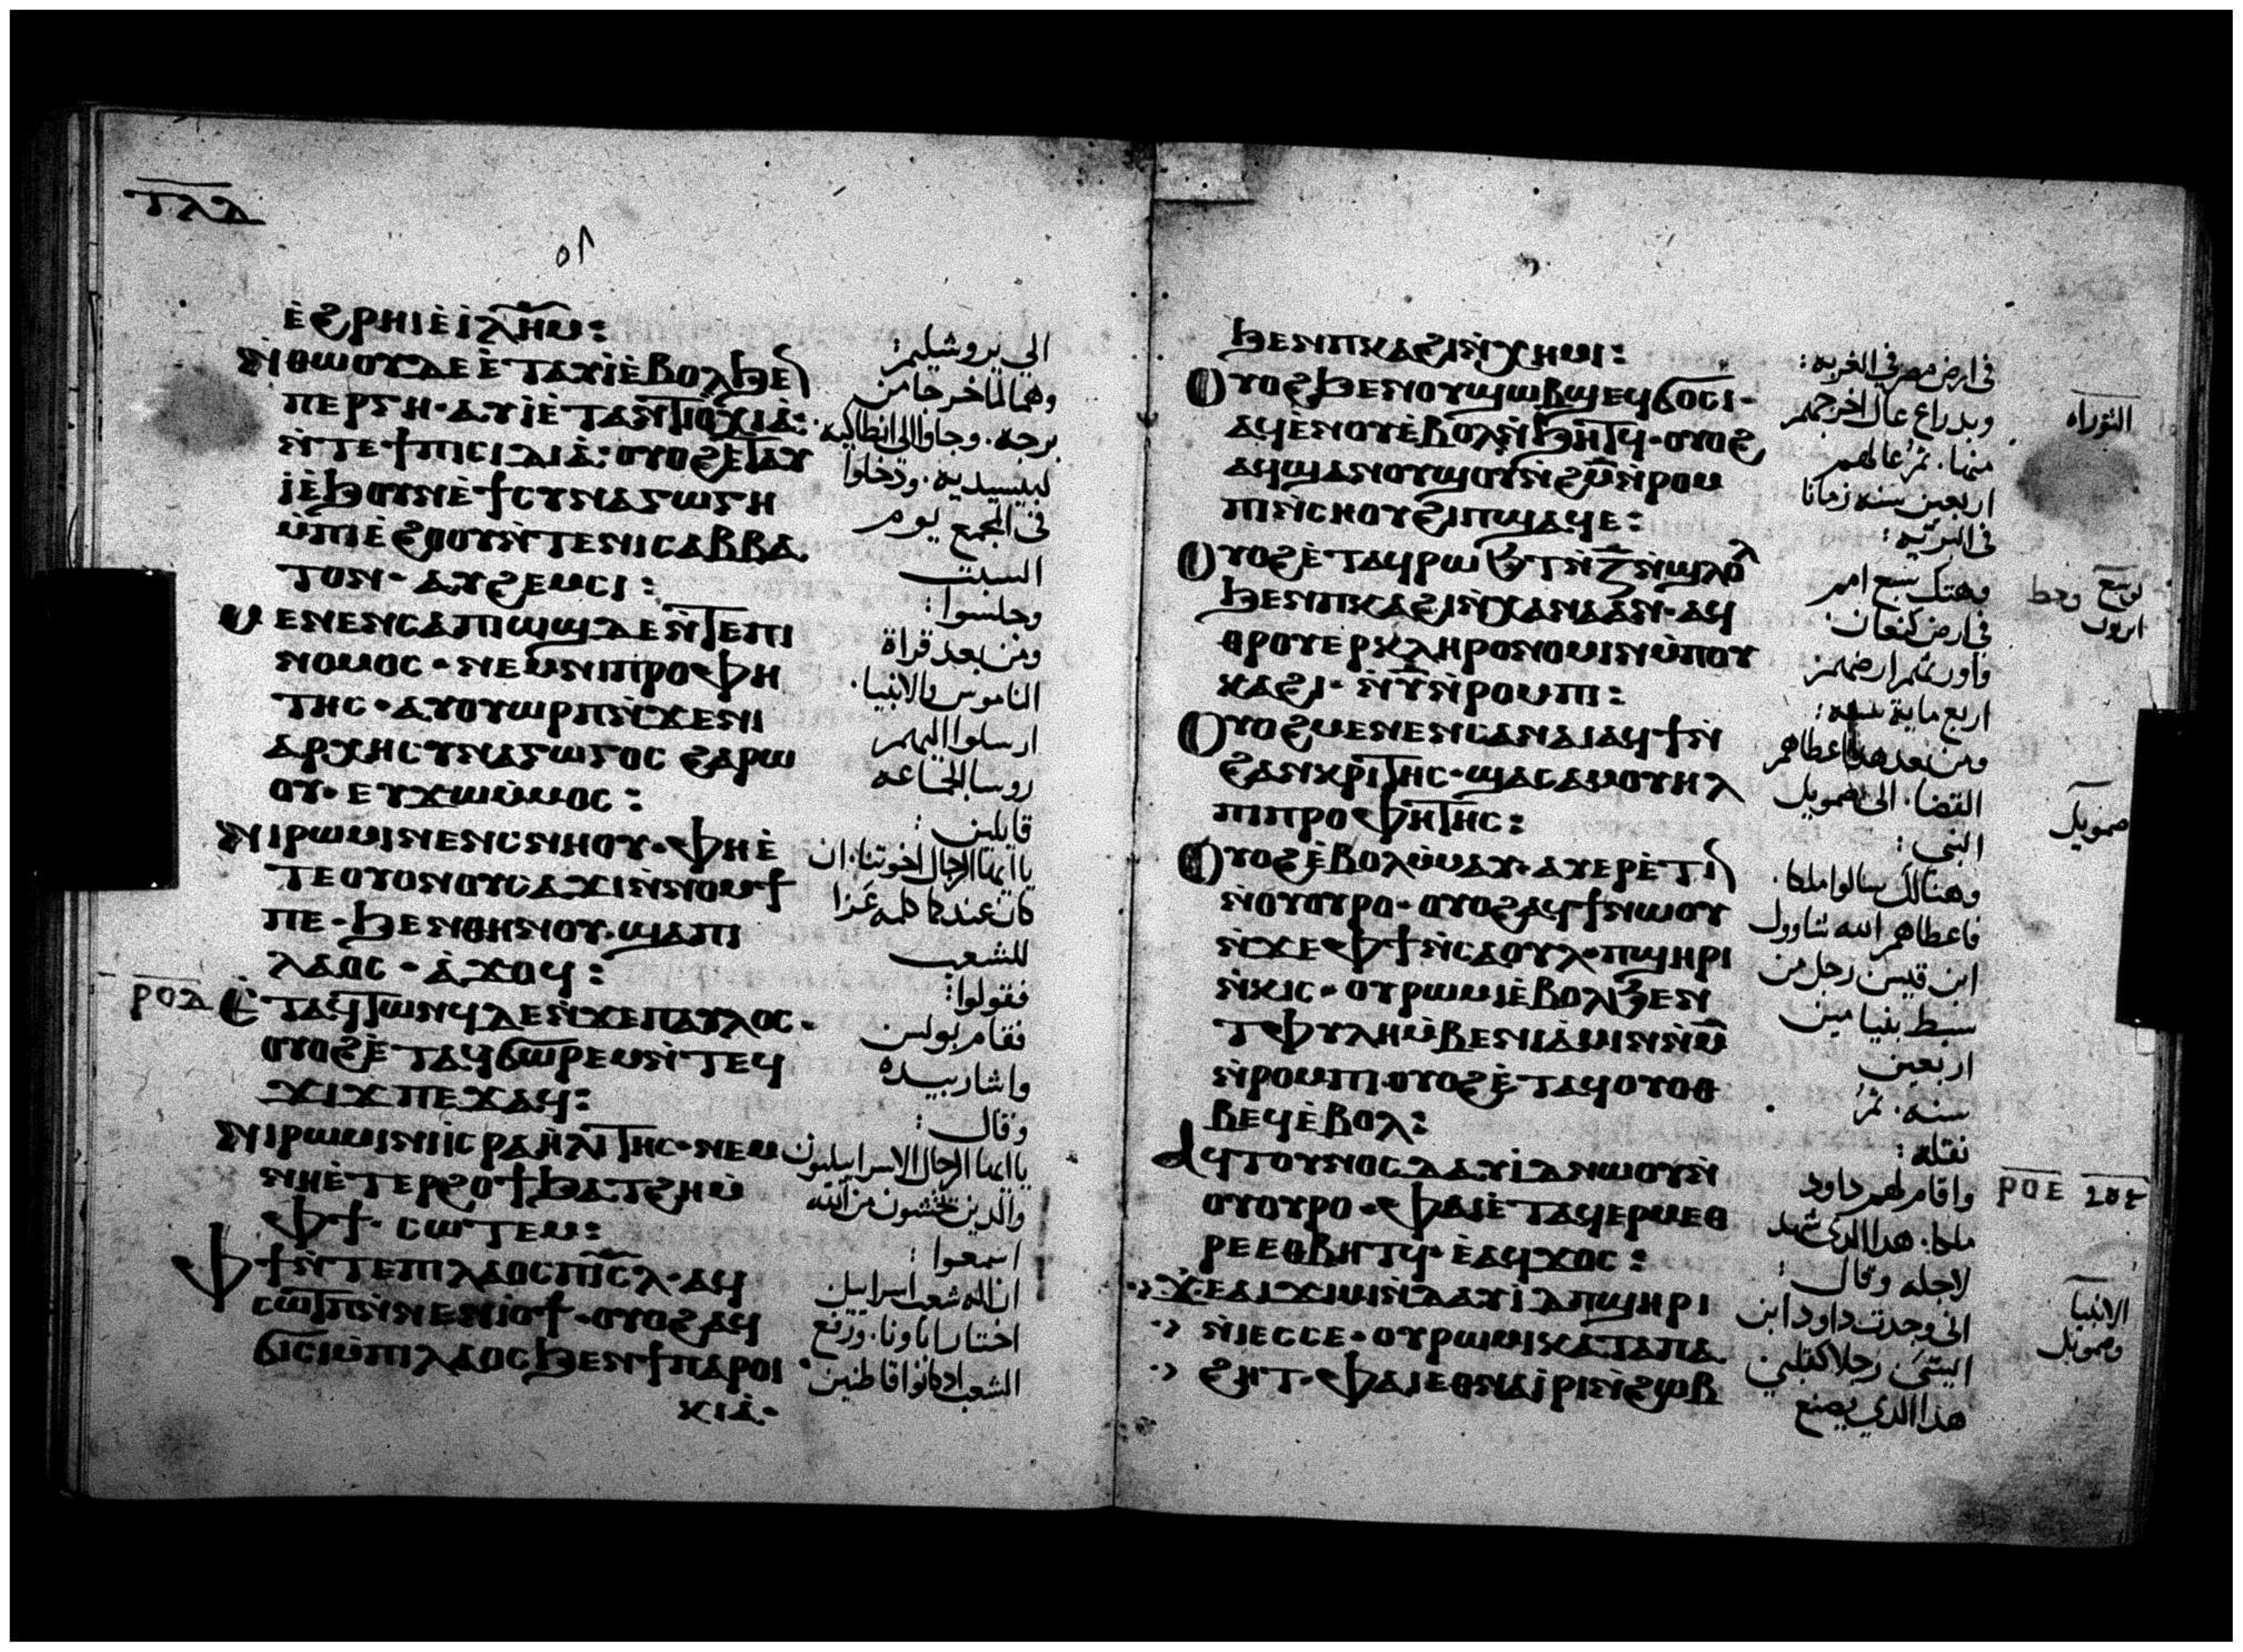 ⲧⲗⲇ
ⲉ̀ϩⲣⲏⲓⲉ̀ⲓ̀ⲗ̅ⲏ̅ⲙ̅:
ⲛ̀ⲑⲱⲟⲩⲇⲉⲉ̀ⲧⲁⲩⲓ̀ⲉ̀ⲃⲟⲗϧⲉⲛ
ⲡⲉⲣⲅⲏ· ⲁⲩⲓ̀ⲉ̀ⲧⲁⲛⲧⲓⲟⲭⲓⲁ̀:
ⲛ̀ⲧⲉϯⲡⲓⲥⲓⲇⲓⲁ̀: ⲟⲩⲟϩⲉⲧⲁⲩ
ⲓ̀ⲉ̀ϧⲟⲩⲛⲉ̀ϯⲥⲩⲛⲁⲅⲱⲅⲏ
ⲙ̀ⲡⲓⲉ̀ϩⲟⲟⲩⲛ̀ⲧⲉⲛⲓⲥⲁⲃⲃⲁ
ⲧⲟⲛ· ⲁⲩϩⲉⲙⲥⲓ:
ⲙⲉⲛⲉⲛⲥⲁⲡⲓⲱϣⲇⲉⲛ̀ⲧⲉⲡⲓ
ⲛⲟⲙⲟⲥ· ⲛⲉⲙⲛⲓⲡⲣⲟⲫⲏ
ⲧⲏⲥ· ⲁⲩⲟⲩⲱⲣⲡⲛ̀ϫⲉⲛⲓ
ⲁⲣⲭⲏⲥⲩⲛⲁⲅⲱⲅⲟⲥ ϩⲁⲣⲱ
ⲟⲩ· ⲉⲩϫⲱⲙ̀ⲙⲟⲥ:
ⲛⲓⲣⲱⲙⲓⲛⲉⲛⲥⲛⲏⲟⲩ· ⲫⲏⲉ̀
ⲧⲉⲟⲩⲟⲛⲟⲩⲥⲁϫⲓⲛ̀ⲛⲟⲙϯ
ⲡⲉ· ϧⲉⲛⲑⲏⲛⲟⲩ· ϣⲁⲡⲓ
ⲗⲁⲟⲥ· ⲁ̀ϫⲟϥ:
ⲣⲟⲇ ⲉ̀ⲧⲁϥⲧⲱⲛϥⲇⲉⲛ̀ϫⲉⲡⲁⲩⲗⲟⲥ·
ⲟⲩⲟϩⲉ̀ⲧⲁϥϭⲱⲣⲉⲙⲛ̀ⲧⲉϥ
ϫⲓϫⲡⲉϫⲁϥ:
ⲛⲓⲣⲱⲙⲓⲛⲓⲓⲥⲣⲁⲏ̀ⲗⲓⲧⲏⲥ· ⲛⲉⲙ
ⲛⲏⲉ̀ⲧⲉⲣϩⲟϯϧⲁⲧϩⲏⲙ̀
ⲫϯ· ⲥⲱⲧⲉⲙ:
ⲫϯⲛ̀ⲧⲉⲡⲓⲗⲁⲟⲥⲡⲓ̅ⲥ̅ⲗ· ⲁϥ
ⲥⲱⲧⲡⲛ̀ⲛⲉⲛⲓⲟϯ· ⲟⲩⲟϩⲁϥ
ϭⲓⲥⲓⲙ̀ⲡⲓⲗⲁⲟⲥϧⲉⲛϯⲡⲁⲣⲟⲓ
ⲕⲓⲁ̀·
الى يروشليم:
وهما لما خرجا من
برجه. وجاوا الى انطاكيه.
لبيسيديه. ودخلوا
فى المجمع يوم
السبت
وجلسوا:
ومن بعد قراة
الناموس والانبيا.
ارسلوا اليهم
روسا الجماعه
قايلين:
يا ايها الرجال اخوتنا. ان
كان عندكم كلمه عزا
للشعب
فقولوا:
فقام بولس
واشار بيده
وقال:
يا ايها الرجال الاسراييليون
والدين تخشون من الله
اسمعوا:
ان اله شعب اسراييل
اختار اباونا. ورفع
الشعب اد كانوا قاطنين
ϧⲉⲛⲡⲕⲁϩⲓⲛ̀ⲭⲏⲙⲓ:
ⲟⲩⲟϩϧⲉⲛⲟⲩϣⲱⲃϣⲉϥϭⲟⲥⲓ·
ⲁϥⲉ̀ⲛⲟⲩⲉ̀ⲃⲟⲗⲛ̀ϧⲏⲧϥ· ⲟⲩⲟϩ
ⲁϥϣⲁⲛⲟⲩϣⲟⲩⲛ̀ϩⲙ̅ⲛ̀ⲣⲟⲙ
ⲡⲓⲛ̀ⲥⲏⲟⲩϩⲓⲡϣⲁϥⲉ:
ⲟⲩⲟϩⲉ̀ⲧⲁϥⲣⲱϧⲧⲛ̀ⲍ̅ⲛ̀ϣⲗⲟⲗ
ϧⲉⲛⲡⲕⲁϩⲓⲛ̀ⲭⲁⲛⲁⲁⲛ· ⲁϥ
ⲑⲣⲟⲩⲉⲣⲕⲗⲏⲣⲟⲛⲟⲙⲓⲛⲙ̀ⲡⲟⲩ
ⲕⲁϩⲓ· ⲛ̀ⲩ̅ⲛ̀ⲣⲟⲙⲡⲓ:
ⲟⲩⲟϩⲙⲉⲛⲉⲛⲥⲁⲛⲁⲓⲁϥϯⲛ̀
ϩⲁⲛⲕⲣⲓⲧⲏⲥ· ϣⲁⲥⲁⲙⲟⲩⲏⲗ
ⲡⲓⲡⲣⲟⲫⲏⲧⲏⲥ:
ⲟⲩⲟϩⲉ̀ⲃⲟⲗⲙ̀ⲙⲁⲩ· ⲁⲩⲉⲣⲉ̀ⲧⲓⲛ
ⲛ̀ⲟⲩⲟⲩⲣⲟ· ⲟⲩⲟϩⲁϥϯⲛⲱⲟⲩ
ⲛ̀ϫⲉⲫϯⲛ̀ⲥⲁⲟⲩⲗ· ⲡϣⲏⲣⲓ
ⲛ̀ⲕⲓⲥ· ⲟⲩⲣⲱⲙⲓⲉ̀ⲃⲟⲗϧⲉⲛ
ⲧⲫⲩⲗⲏⲙ̀ⲃⲉⲛⲓⲁ̀ⲙⲓⲛⲛ̀ⲙ̅
ⲛ̀ⲣⲟⲙⲡⲓ· ⲟⲩⲟϩⲉ̀ⲧⲁϥⲟⲩⲟⲑ
ⲃⲉϥⲉ̀ⲃⲟⲗ:
ⲁϥⲧⲟⲩⲛⲟⲥⲇⲁⲩⲓ̀ⲇⲛⲱⲟⲩⲛ̀
ⲟⲩⲟⲩⲣⲟ· ⲫⲁⲓⲉ̀ⲧⲁϥⲉⲣⲙⲉⲑ
ⲣⲉⲉⲑⲃⲏⲧϥ· ⲉ̀ⲁϥϫⲟⲥ:
ϫⲉⲁⲓϫⲓⲙⲓⲛ̀ⲇⲁⲩⲓ̀ⲇⲡϣⲏⲣⲓ
ⲛ̀ⲓⲉⲥⲥⲉ· ⲟⲩⲣⲱⲙⲓⲕⲁⲧⲁⲡⲁ
ϩⲏⲧ· ⲫⲁⲓⲉⲑⲛⲁⲓ̀ⲣⲓⲛ̀ϩⲱⲃ
فى ارض مصر فى الغربه:
وبدراع عال اخرجهم
منها. ثم عالهم
اربعين سنه زمانا
فى البريه:
وهتك سبع امم
فى ارض كنعان.
فاورثهم ارضهم
اربع ماية سنه:
ومن بعد هدا اعطاهم
القضا. الى صمويل
النبى:
وهنالك سالوا ملكا.
فاعطاهم الله شاوول
ابن قيس رجل من
سبط بنيامين
اربعين
سنه. ثم
نقله:
واقام لهم داود
ملكا. هدا الدى شهد
لاجله وقال:
انى وجدت داود ابن
اليسى رجلا كقلبى
هدا الدي يصنع
التوراه
صمويل
ⲣⲟⲉ
الانبيا
وصمويل